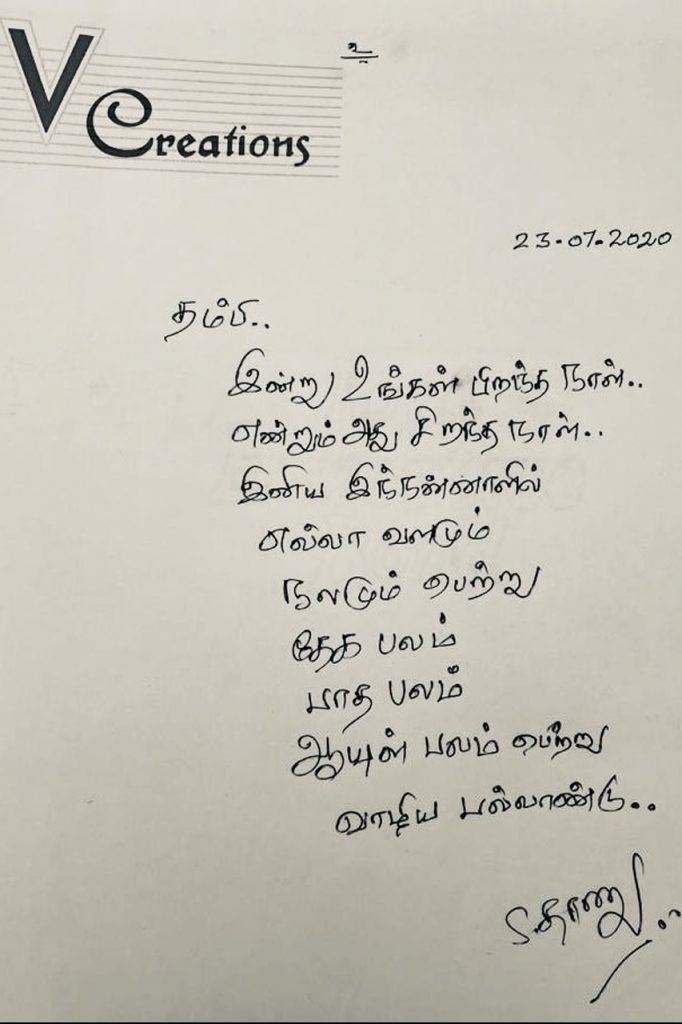 உ
V Creations
23-07-2020
தம்பி..
இன்று உங்கள் பிறந்த நாள்..
என்றும் அது சிறந்த நாள்..
இனிய இந்நன்னாளில்
எல்லா வளமும்
நலமும் பெற்று
தேக பலம்
பாத பலம்
ஆயுள் பலம் பெற்று
வாழிய பல்லாண்டு..
S.தாணு..